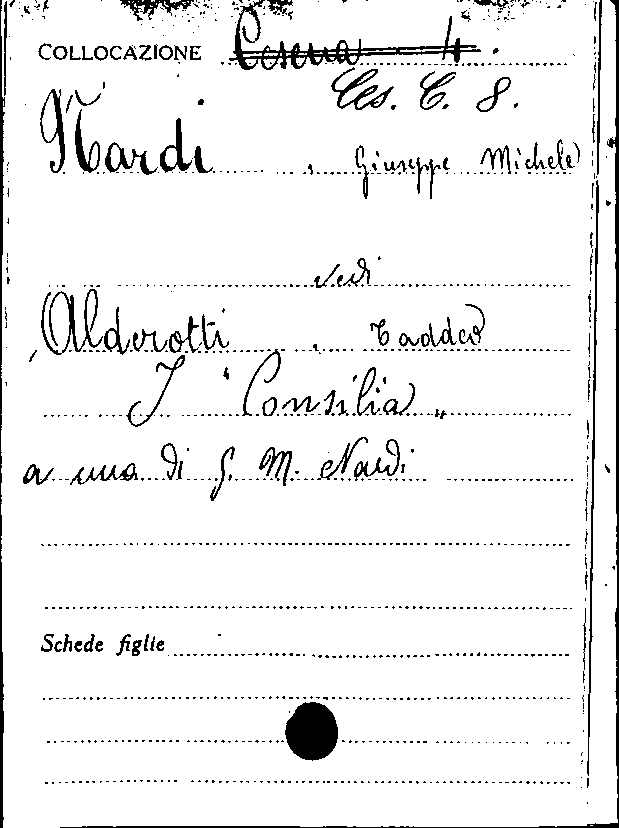 COLLOCAZIONE Cesena 4.
Ces. C. 8.
Nardi, Giuseppe Michele
vedi
Alderotti, Taddeo
I "Consilia"
a una di G. M. Nardi
Schede figlie